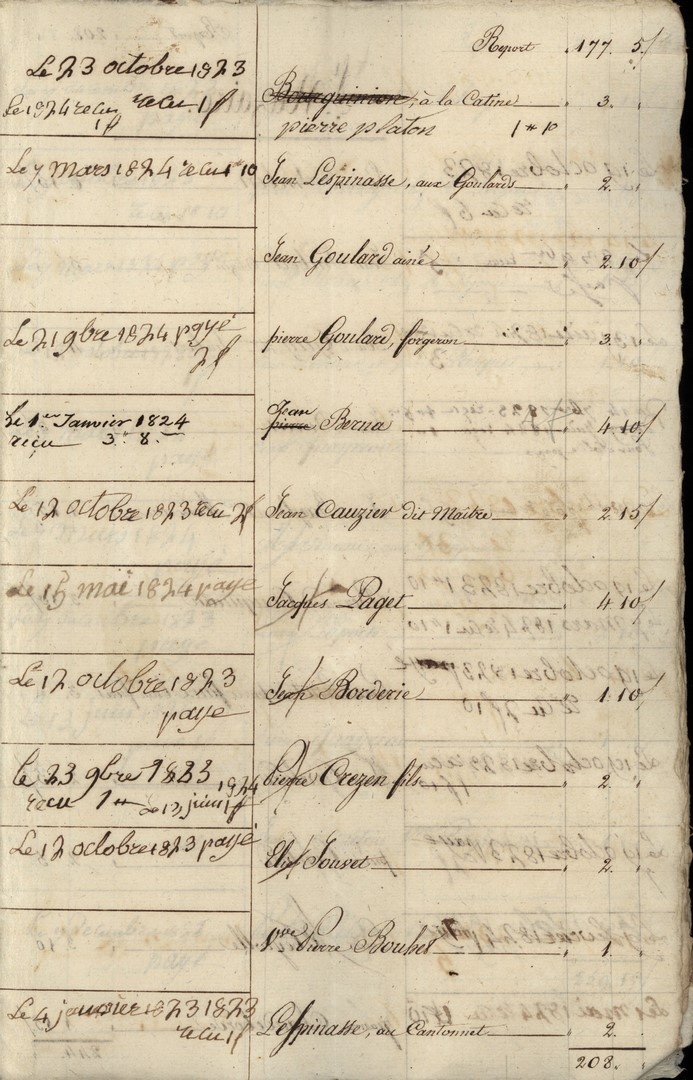 Report 177. 5/
Le 23 octobre 1823 recu 1 ff
le 1824 recu 1 ff
Bourguinion, à la Catine 3.
pierre platon 1 # 10
Le 7 mars 1824 recu 1# 10
Jean Lespinasse, aux Goulards 2.
Jean Goulard ainé 2. 10/
Le 21 9bre 1824 payé
2 ff
pierre Goulard, forgeron 3.
Le 1.er Janvier 1824
recu 3# 8.
Jean
pierre Berna 4. 10/
Le 12 octobre 1823 recu 2 ff
Jean Cauzier dit Maître 2. 15/
Le 15 mai 1824 paye
Jacques Paget 4. 10/
Le 12 octobre 1823
paye
Jean Borderie 1. 10/
le 23 9bre 1823
recu 1 # Le 13 juin 1924 1 ff
pierre Crezen fils 2.
Le 12 octobre 1823 payé
Elie Jouvet 2.
Vve Pierre Bouhet 1.
Le 4 janvier 1823 1823
recu 1 ff
Lespinasse, au Cantonnet 2.
208.